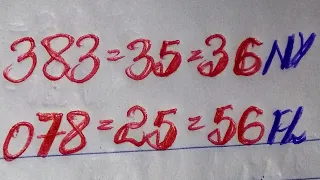 383=35=36NY
078=25=56FL